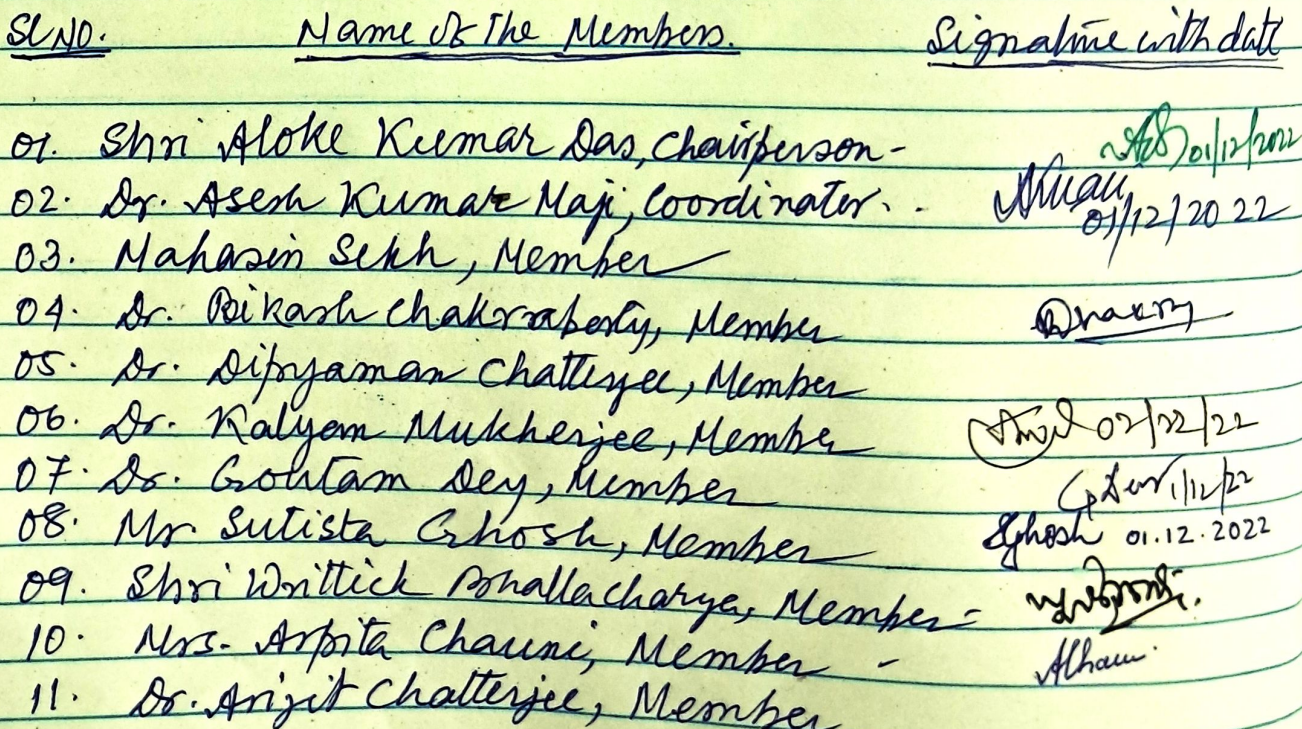 SL NO. Name of The Members. Signature with date
01. Shri Aloke Kumar Das, Chairperson - 01/12/2022
02. Dr. Asesh Kumar Maji, Coordinator. . 01/12/2022
03. Mahasin Sekh, Member
04. Dr. Bikash Chakraborty, Member
05. Dr. Dipyaman Chatterjee, Member
06. Dr. Kalyan Mukherjee, Member
07. Dr. Goutam Dey, Member 1/12/22
08. Mr. Sutista Ghosh, Member SGhosh 01.12.2022
09. Shri Writtick Bhattacharya, Member -
10. Mrs. Arpita Chauni, Member -
11. Dr. Arijit Chatterjee, Member